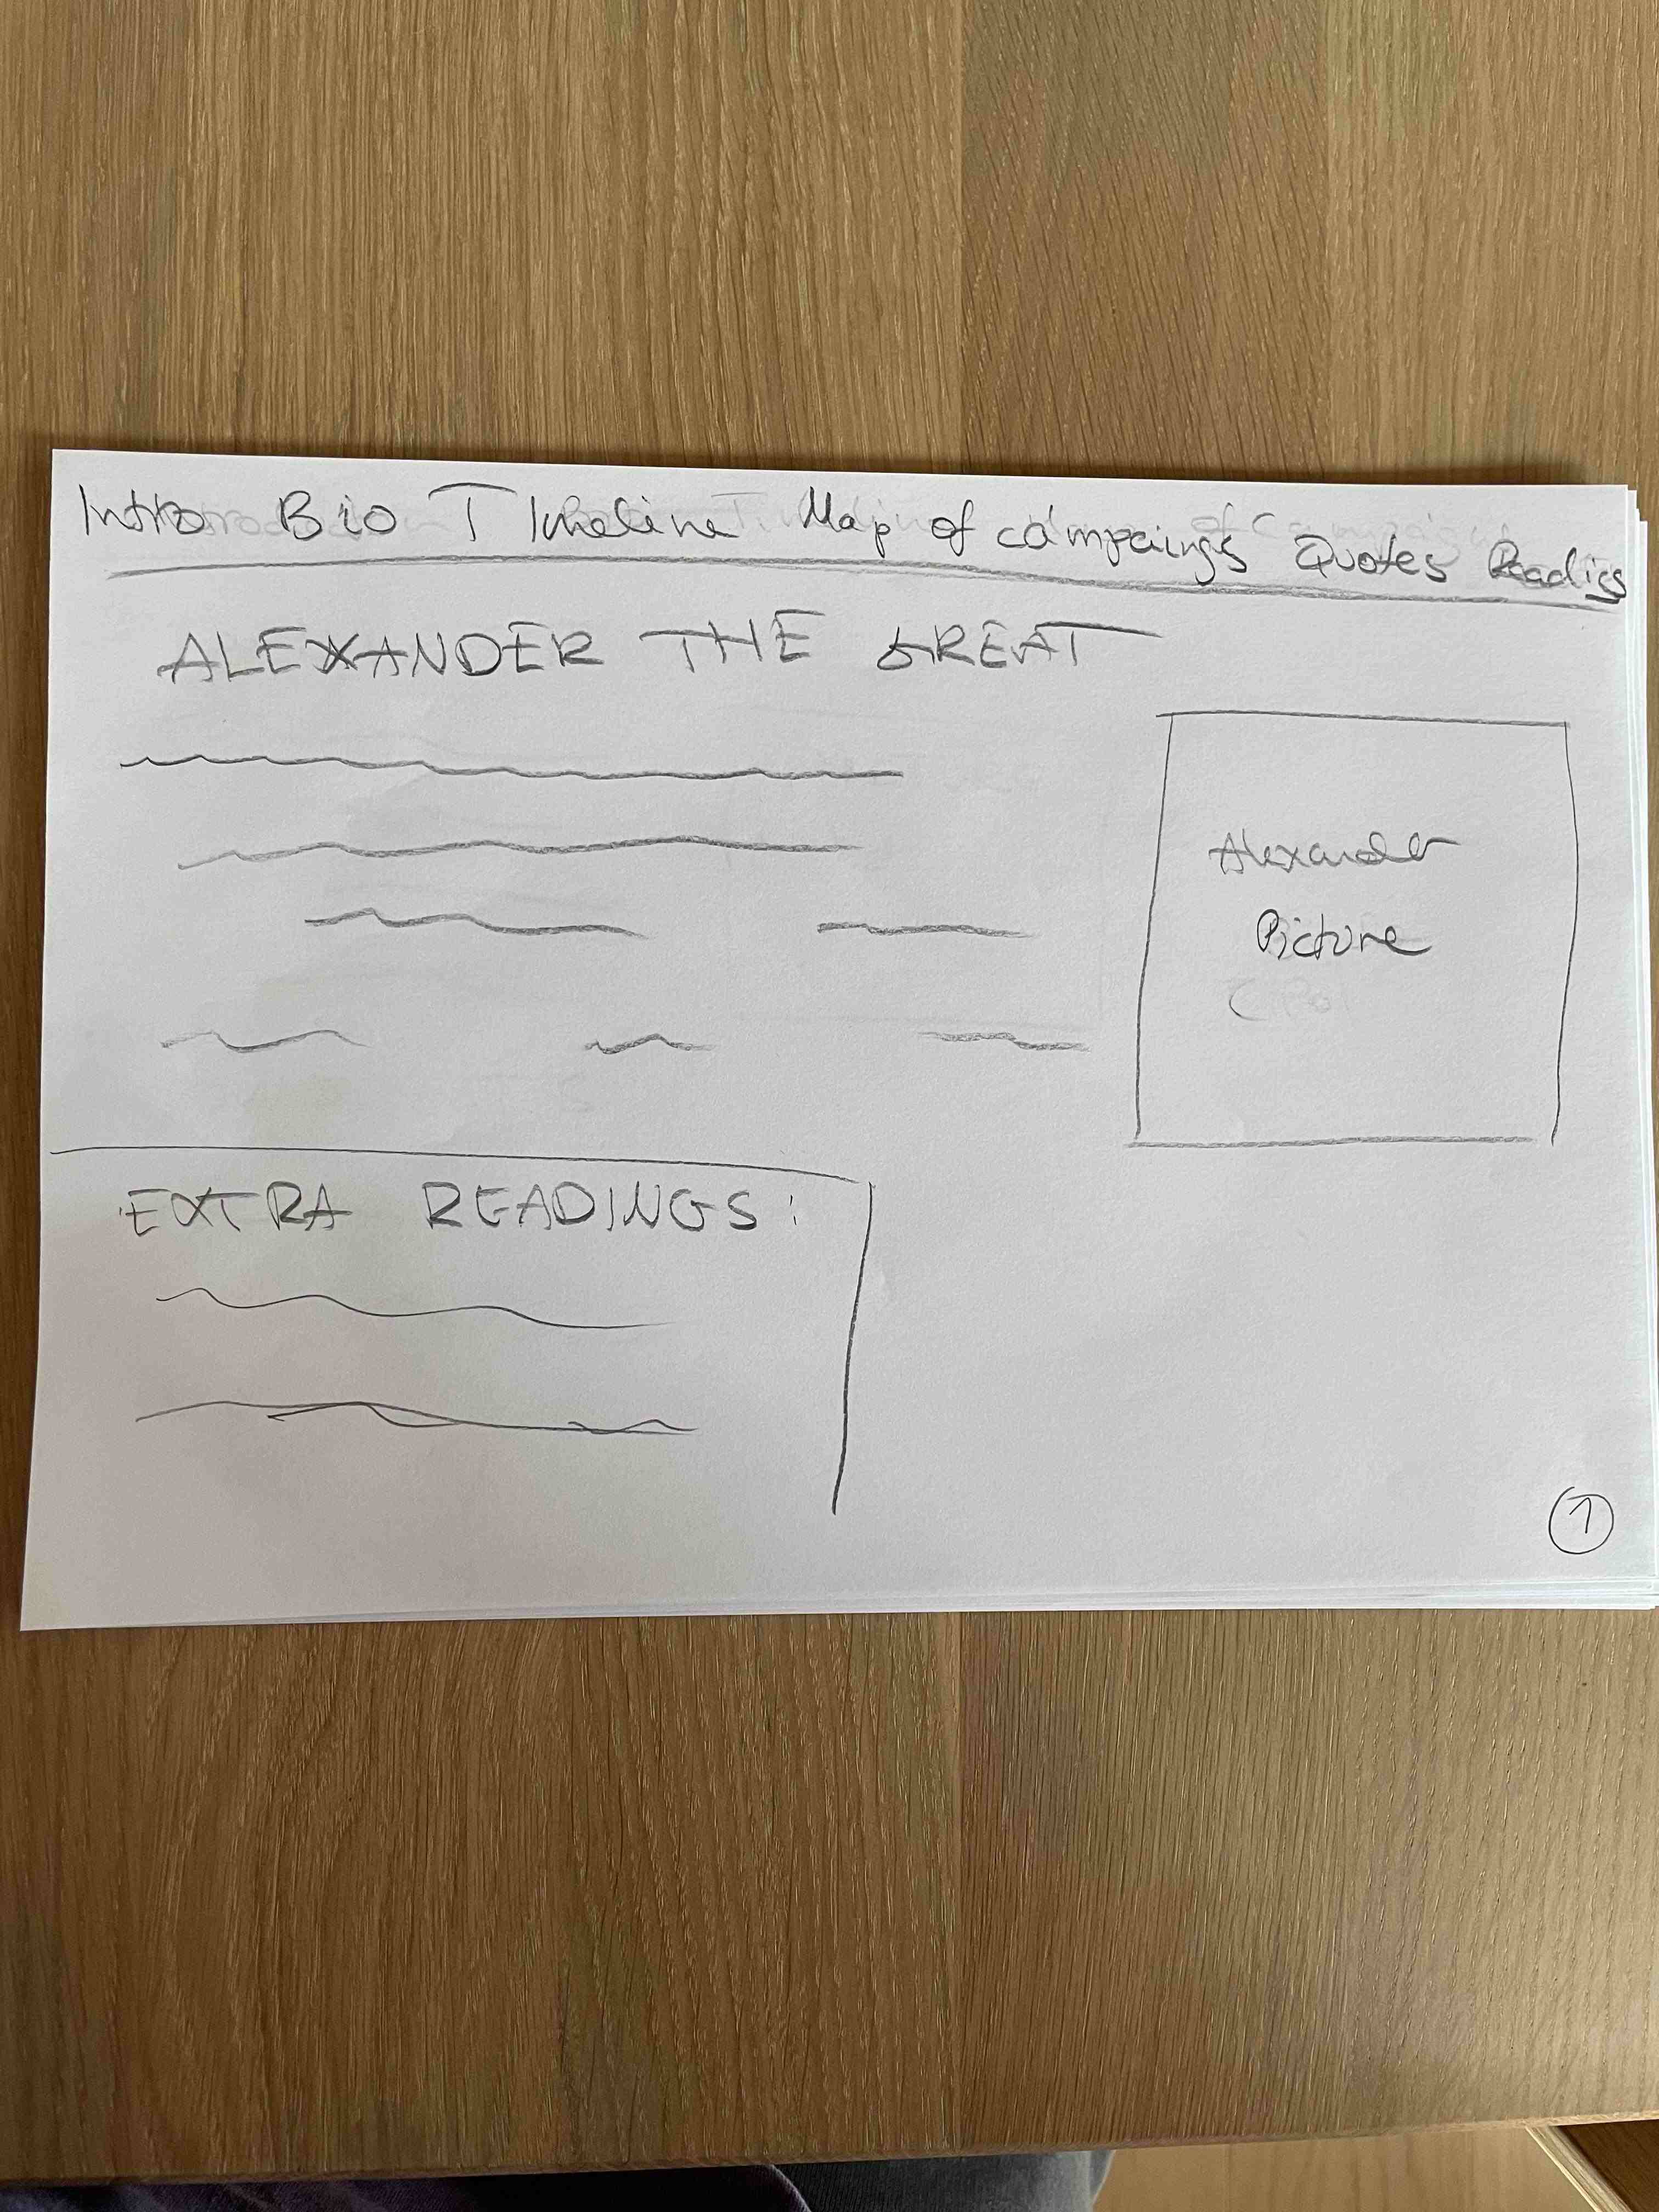 Intro Bio Timeline Map of campaings Quotes Readigs
ALEXANDER THE GREAT
Alexander
Picture
EXTRA READINGS:
1